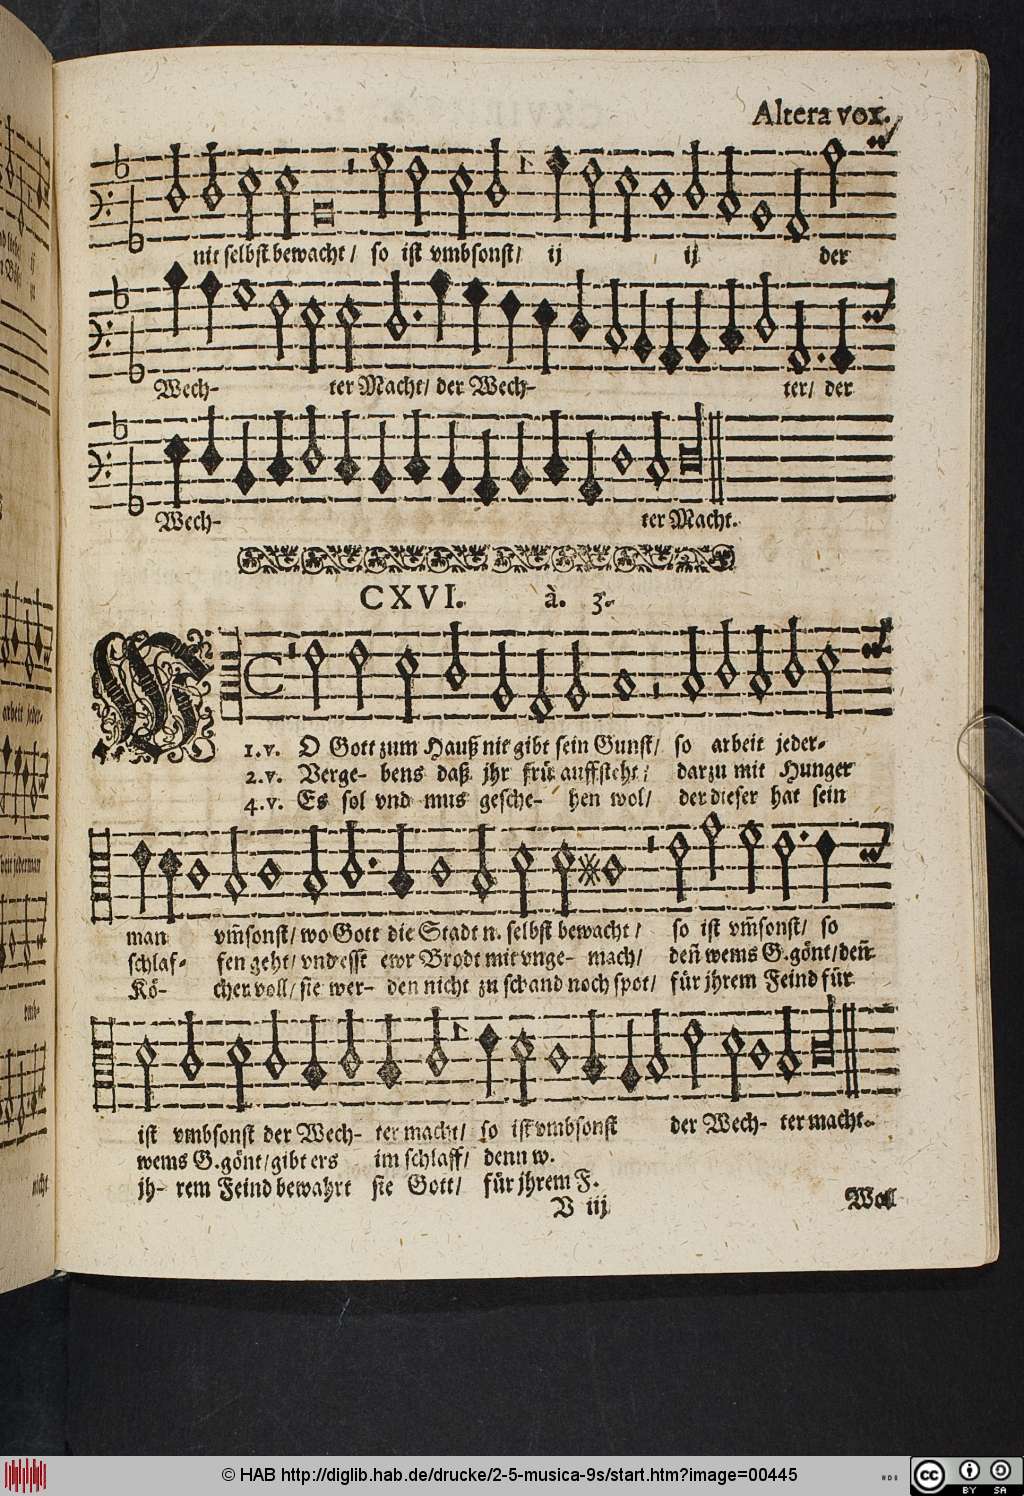 Altera vox.
nit selbst bewacht / so ist vmbsonst / ij ij der
Wech- ter Macht / der Wech- ter / der
Wech- ter Macht.
CXVI. à. 3.
W
1. v. O Gott zum Hauß nit gibt sein Gunst / so arbeit jeder-
2. v. Verge- bens daß jhr früe auffsteht / darzu mit Hunger
4. v. Es sol vnd mus gesche- hen wol / der dieser hat sein
man vm̃sonst / wo Gott die Stadt n. selbst bewacht / so ist vm̃sonst / so
schlaf- fen geht / vnd esst ewr Brodt mit vnge- mach / deñ wems G. gönt / deñ
Kö- cher voll / sie wer- den nicht zu schand noch spot / für jhrem Feind für
ist vmbsonst der Wech- ter macht / so ist vmbsonst der Wech- ter macht.
wems G. gönt / gibt ers im schlaff / denn w.
jh- rem Feind bewahrt sie Gott / für jhrem F.
V iij Woll
© HAB http://diglib.hab.de/drucke/2-5-musica-9s/start.htm?image=00445